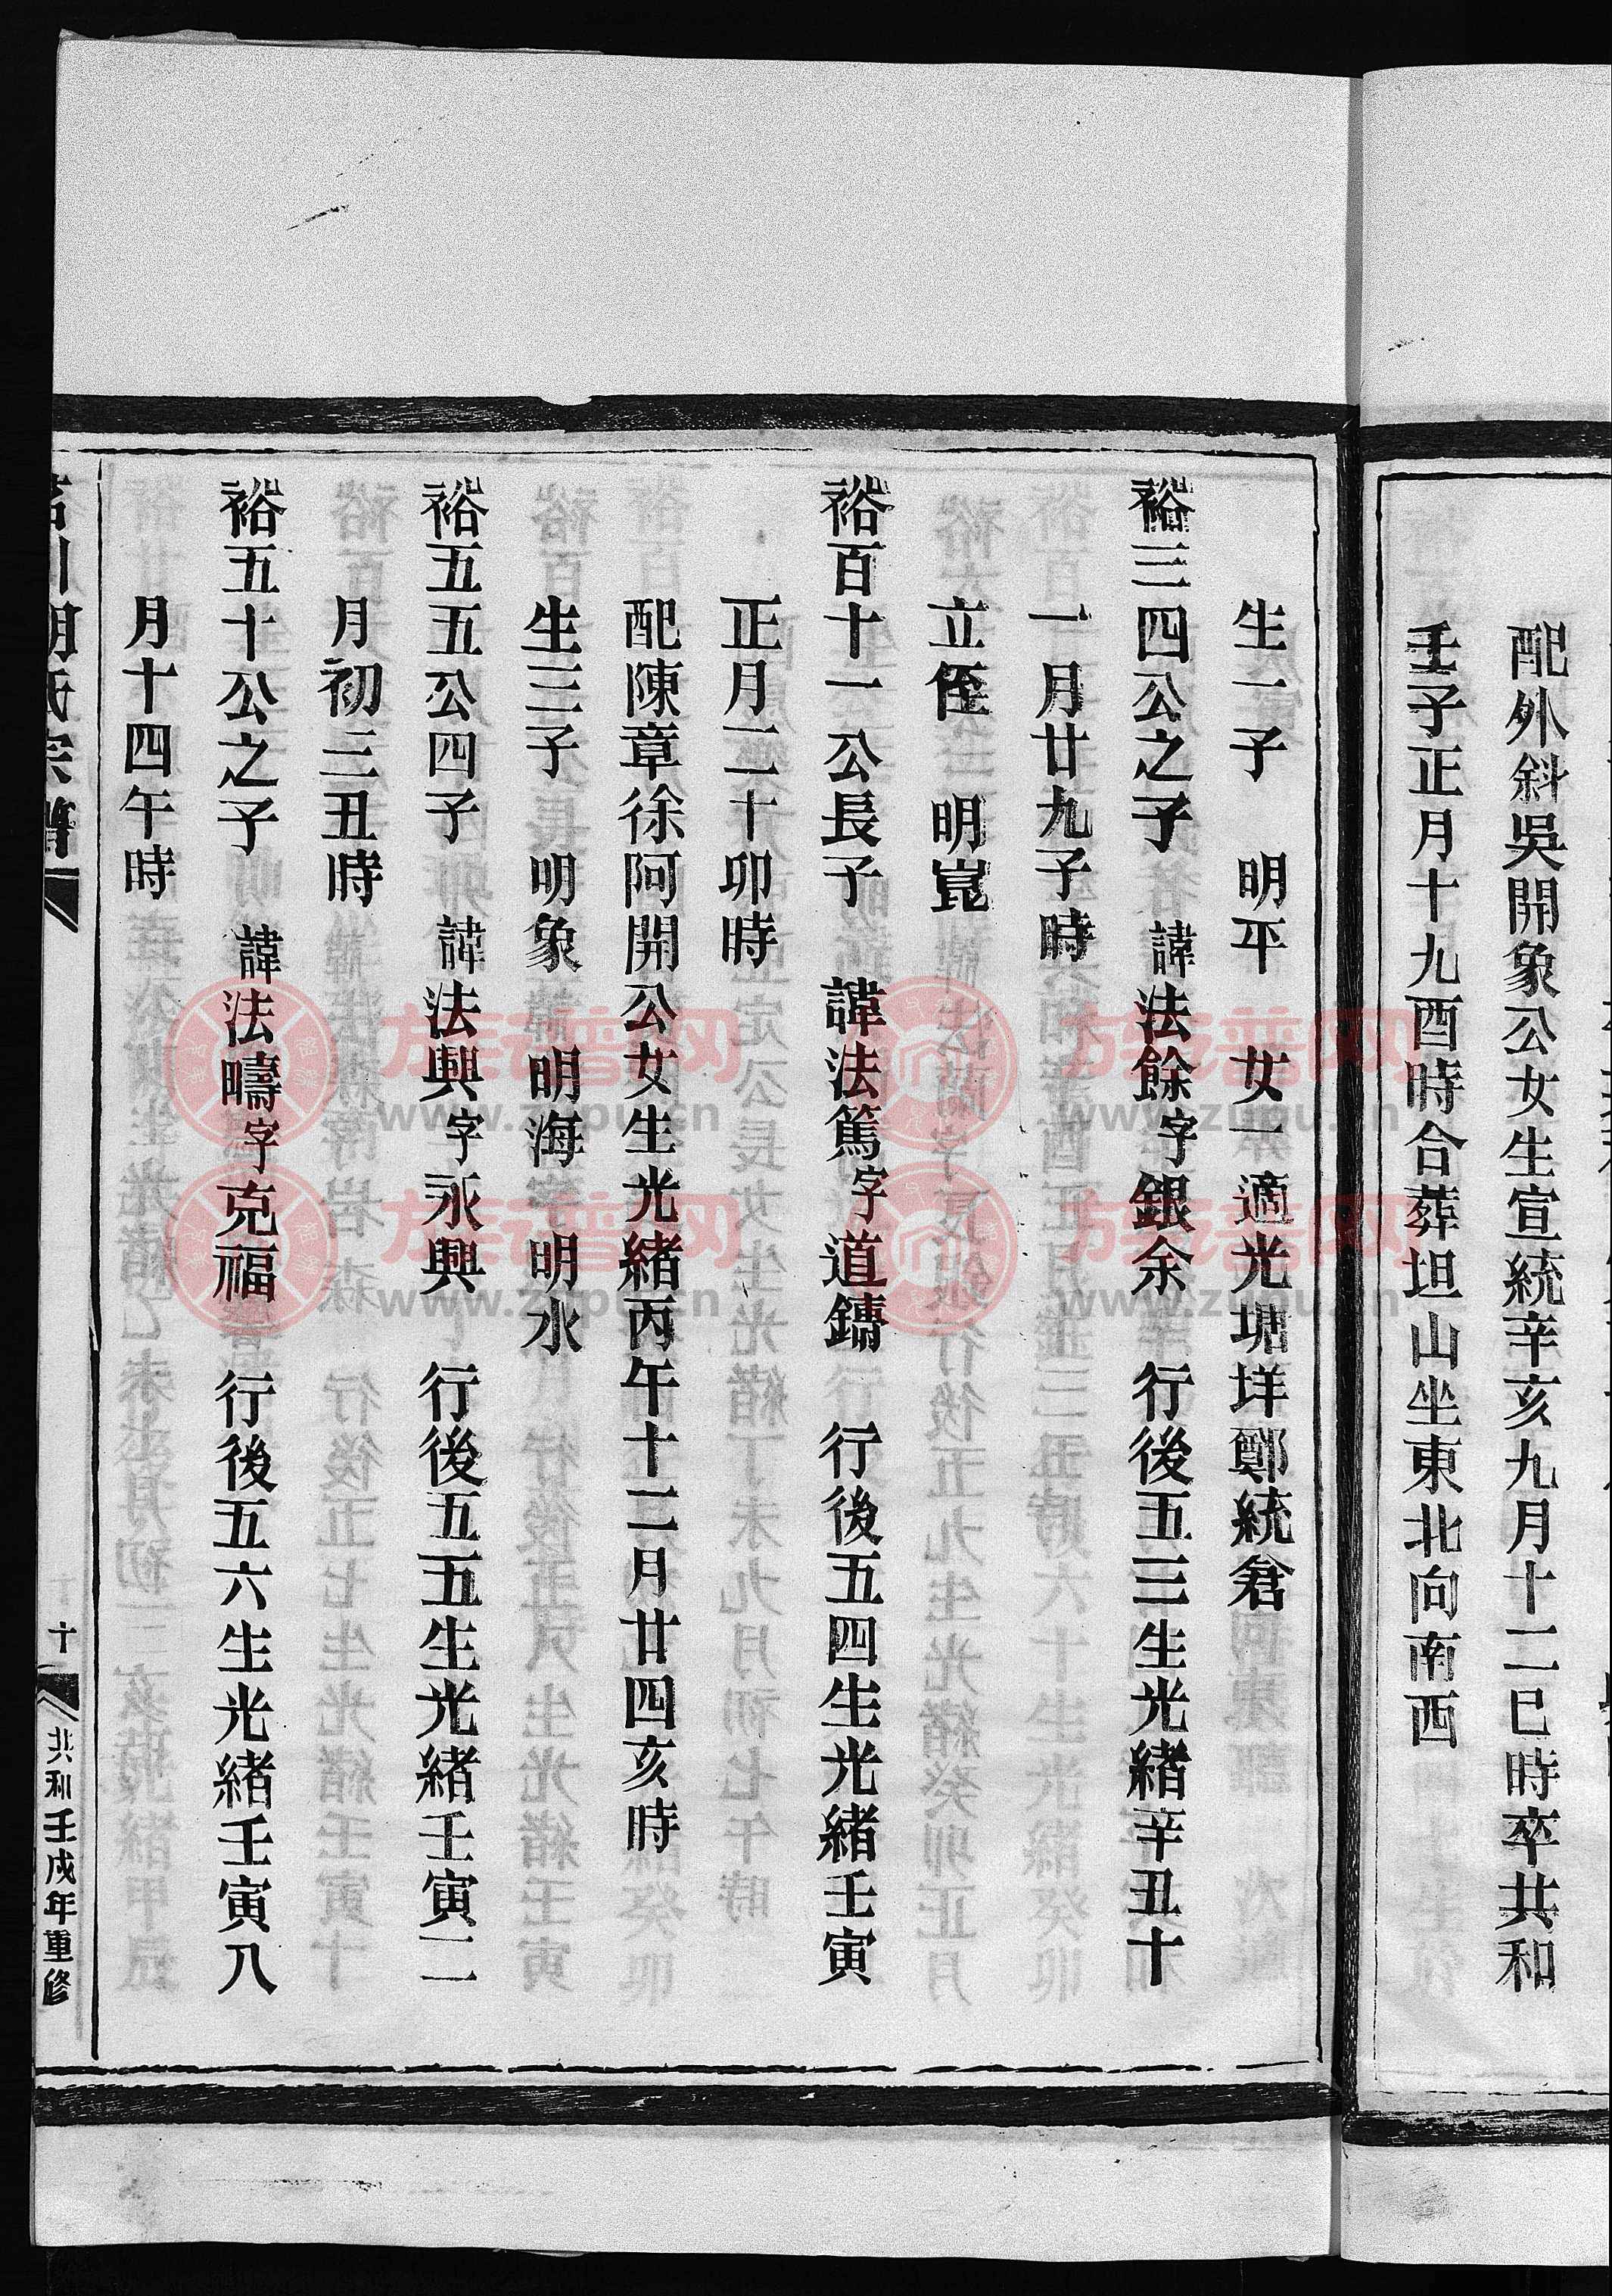 配外斜吳開象公女生宣統辛亥九月十二巳時卒共和
壬子正月十九酉時合葬坦山坐東北向南西
生一子　明平　女一適光塘垟鄭統倉
裕三四公之子　諱法餘字銀余　行後五三生光緒辛丑十
一月廿九子時
立侄　明崑
裕百十一公長子　諱法篤字道鏽　行後五四生光緒壬寅
正月二十卯時
配陳章徐阿開公女生光緒丙午十二月廿四亥時
生三子　明象　明海　明水
裕五五公四子　諱法興字永興　行後五五生光緒壬寅二
月初三丑時
裕五十公之子　諱法疇字克福　行後五六生光緒壬寅八
月十四午時
川胡氏宗譜　十　共和壬戌年重修
族譜网
www.zupu.cn
族譜网
www.zupu.cn
族譜网
www.zupu.cn
族譜网
www.zupu.cn